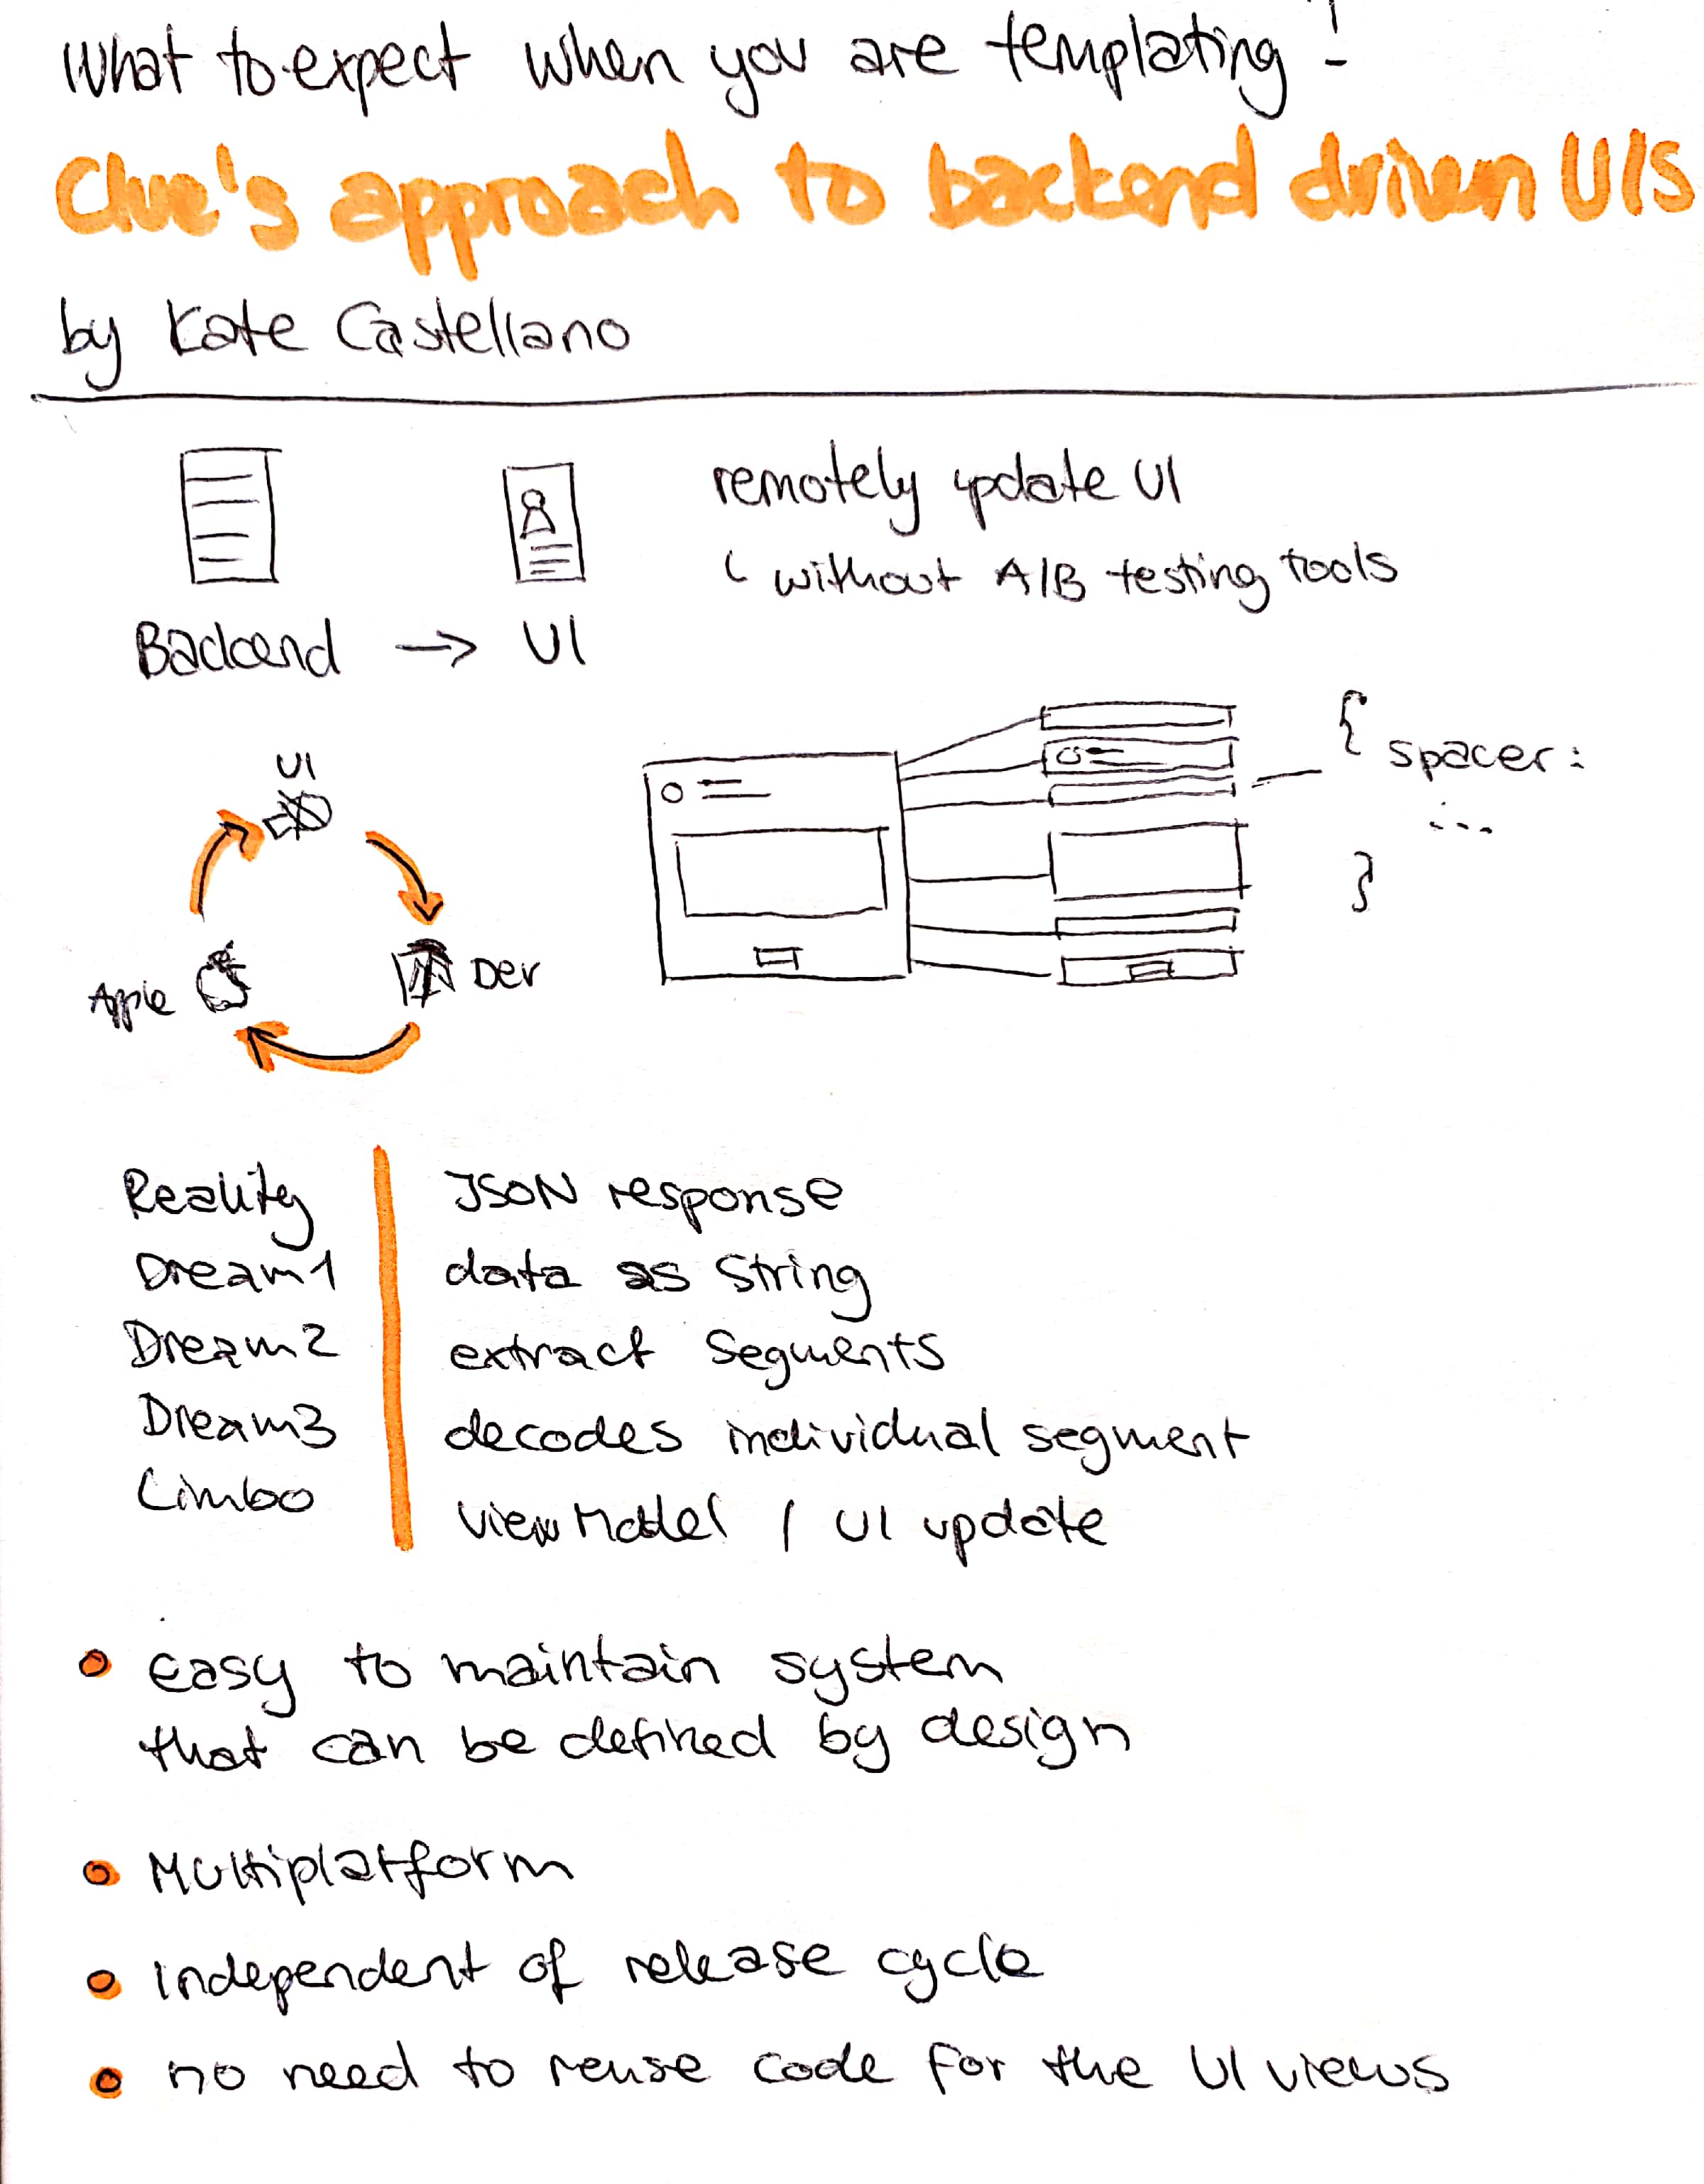 What to expect when you are templating!
Clue's approach to backend driven UIs
by Kate Castellano
remotely update UI
without A/B testing tools
Backend → UI
UI
Dev
Apple
{
spacer:
...
}
Reality
JSON response
Dream1
data as String
Dream2
extract Segments
Dream3
decodes individual segment
Limbo
View Model / UI update
• easy to maintain system
that can be defined by design
• Multiplatform
• independent of release cycle
• no need to reuse code for the UI views